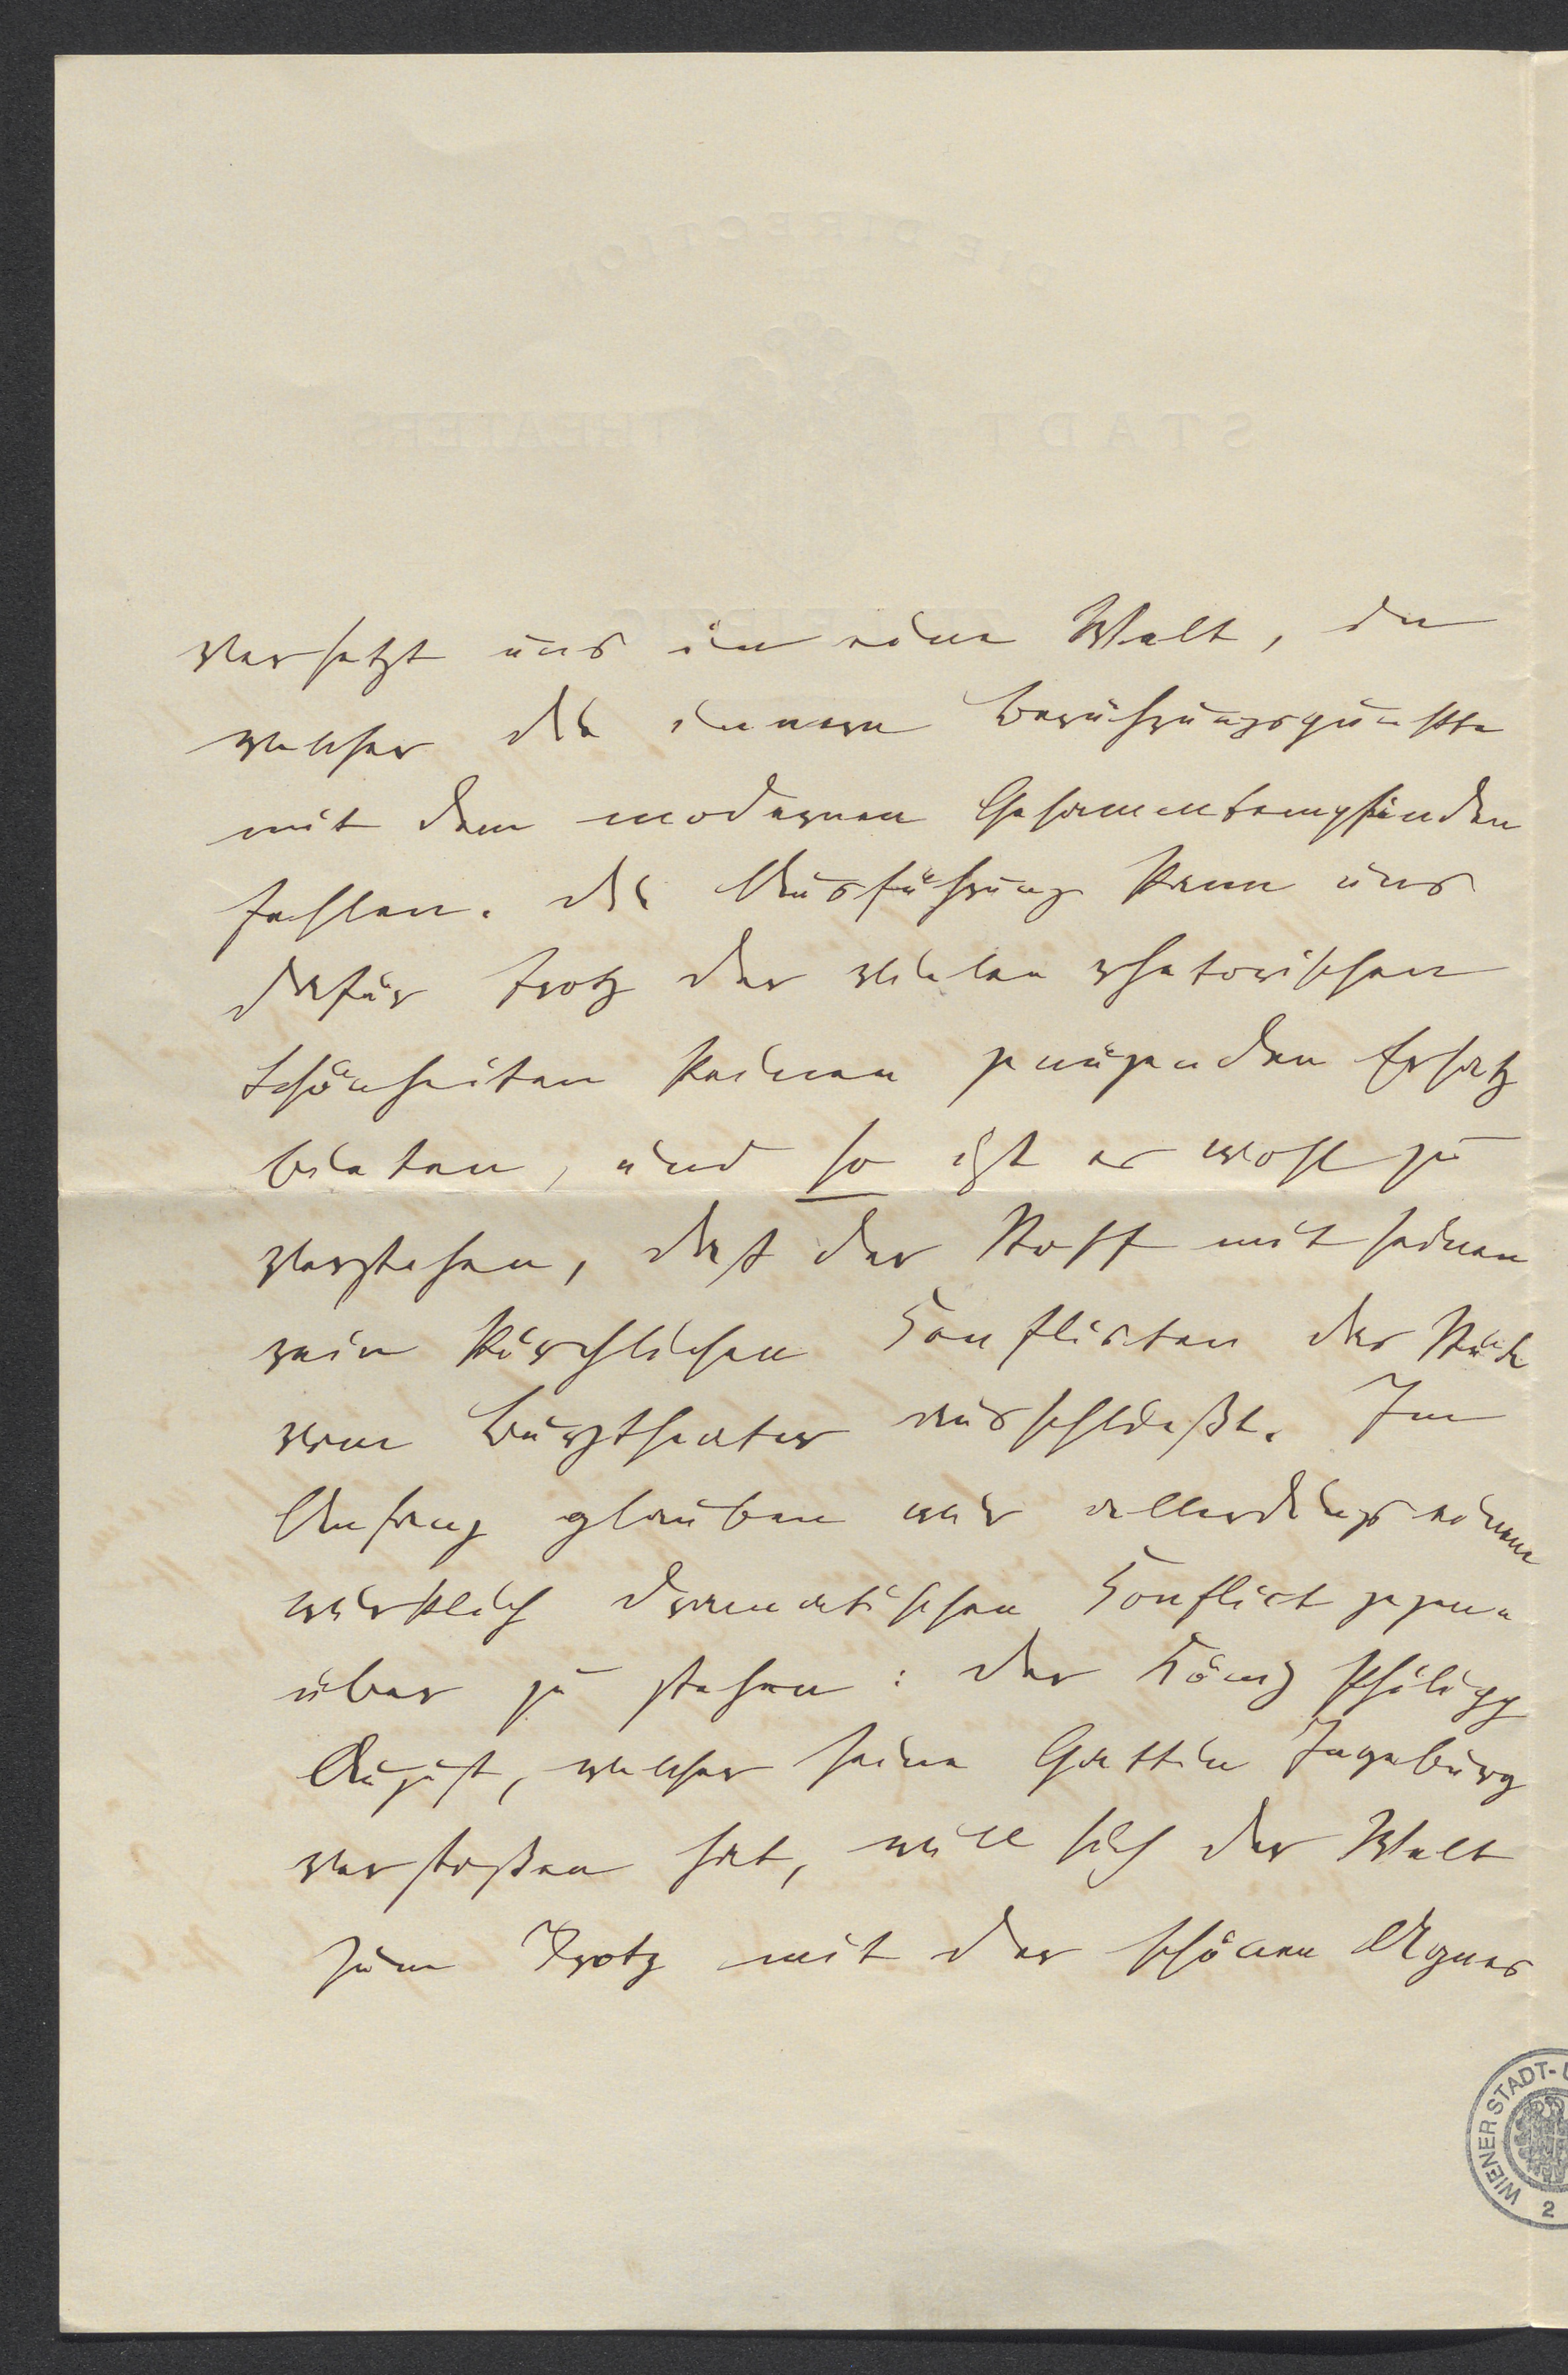 versetzt uns in eine Welt, in
welcher die inneren Berührungspunkte
mit dem modernen Gesammtempfinden
fehlen. Die Ausführung kann uns
dafür trotz der vielen rhetorischen
Schönheiten keinen genügenden Ersatz
bieten, und so ist es wohl zu
verstehen, daß der Stoff mit seinen
rein kirchlichen Conflicten das Stück
vom Burgtheater ausschließt. Im
Anfang glauben wir allerdings einem
wirklich dramatischen Conflict gegen-
über zu stehen: der König Philipp
August, welcher seine Gattin Ingeburg
verstoßen hat, will sich der Welt
zum Trotz mit der schönen Agnes
WIENER STADT-
2